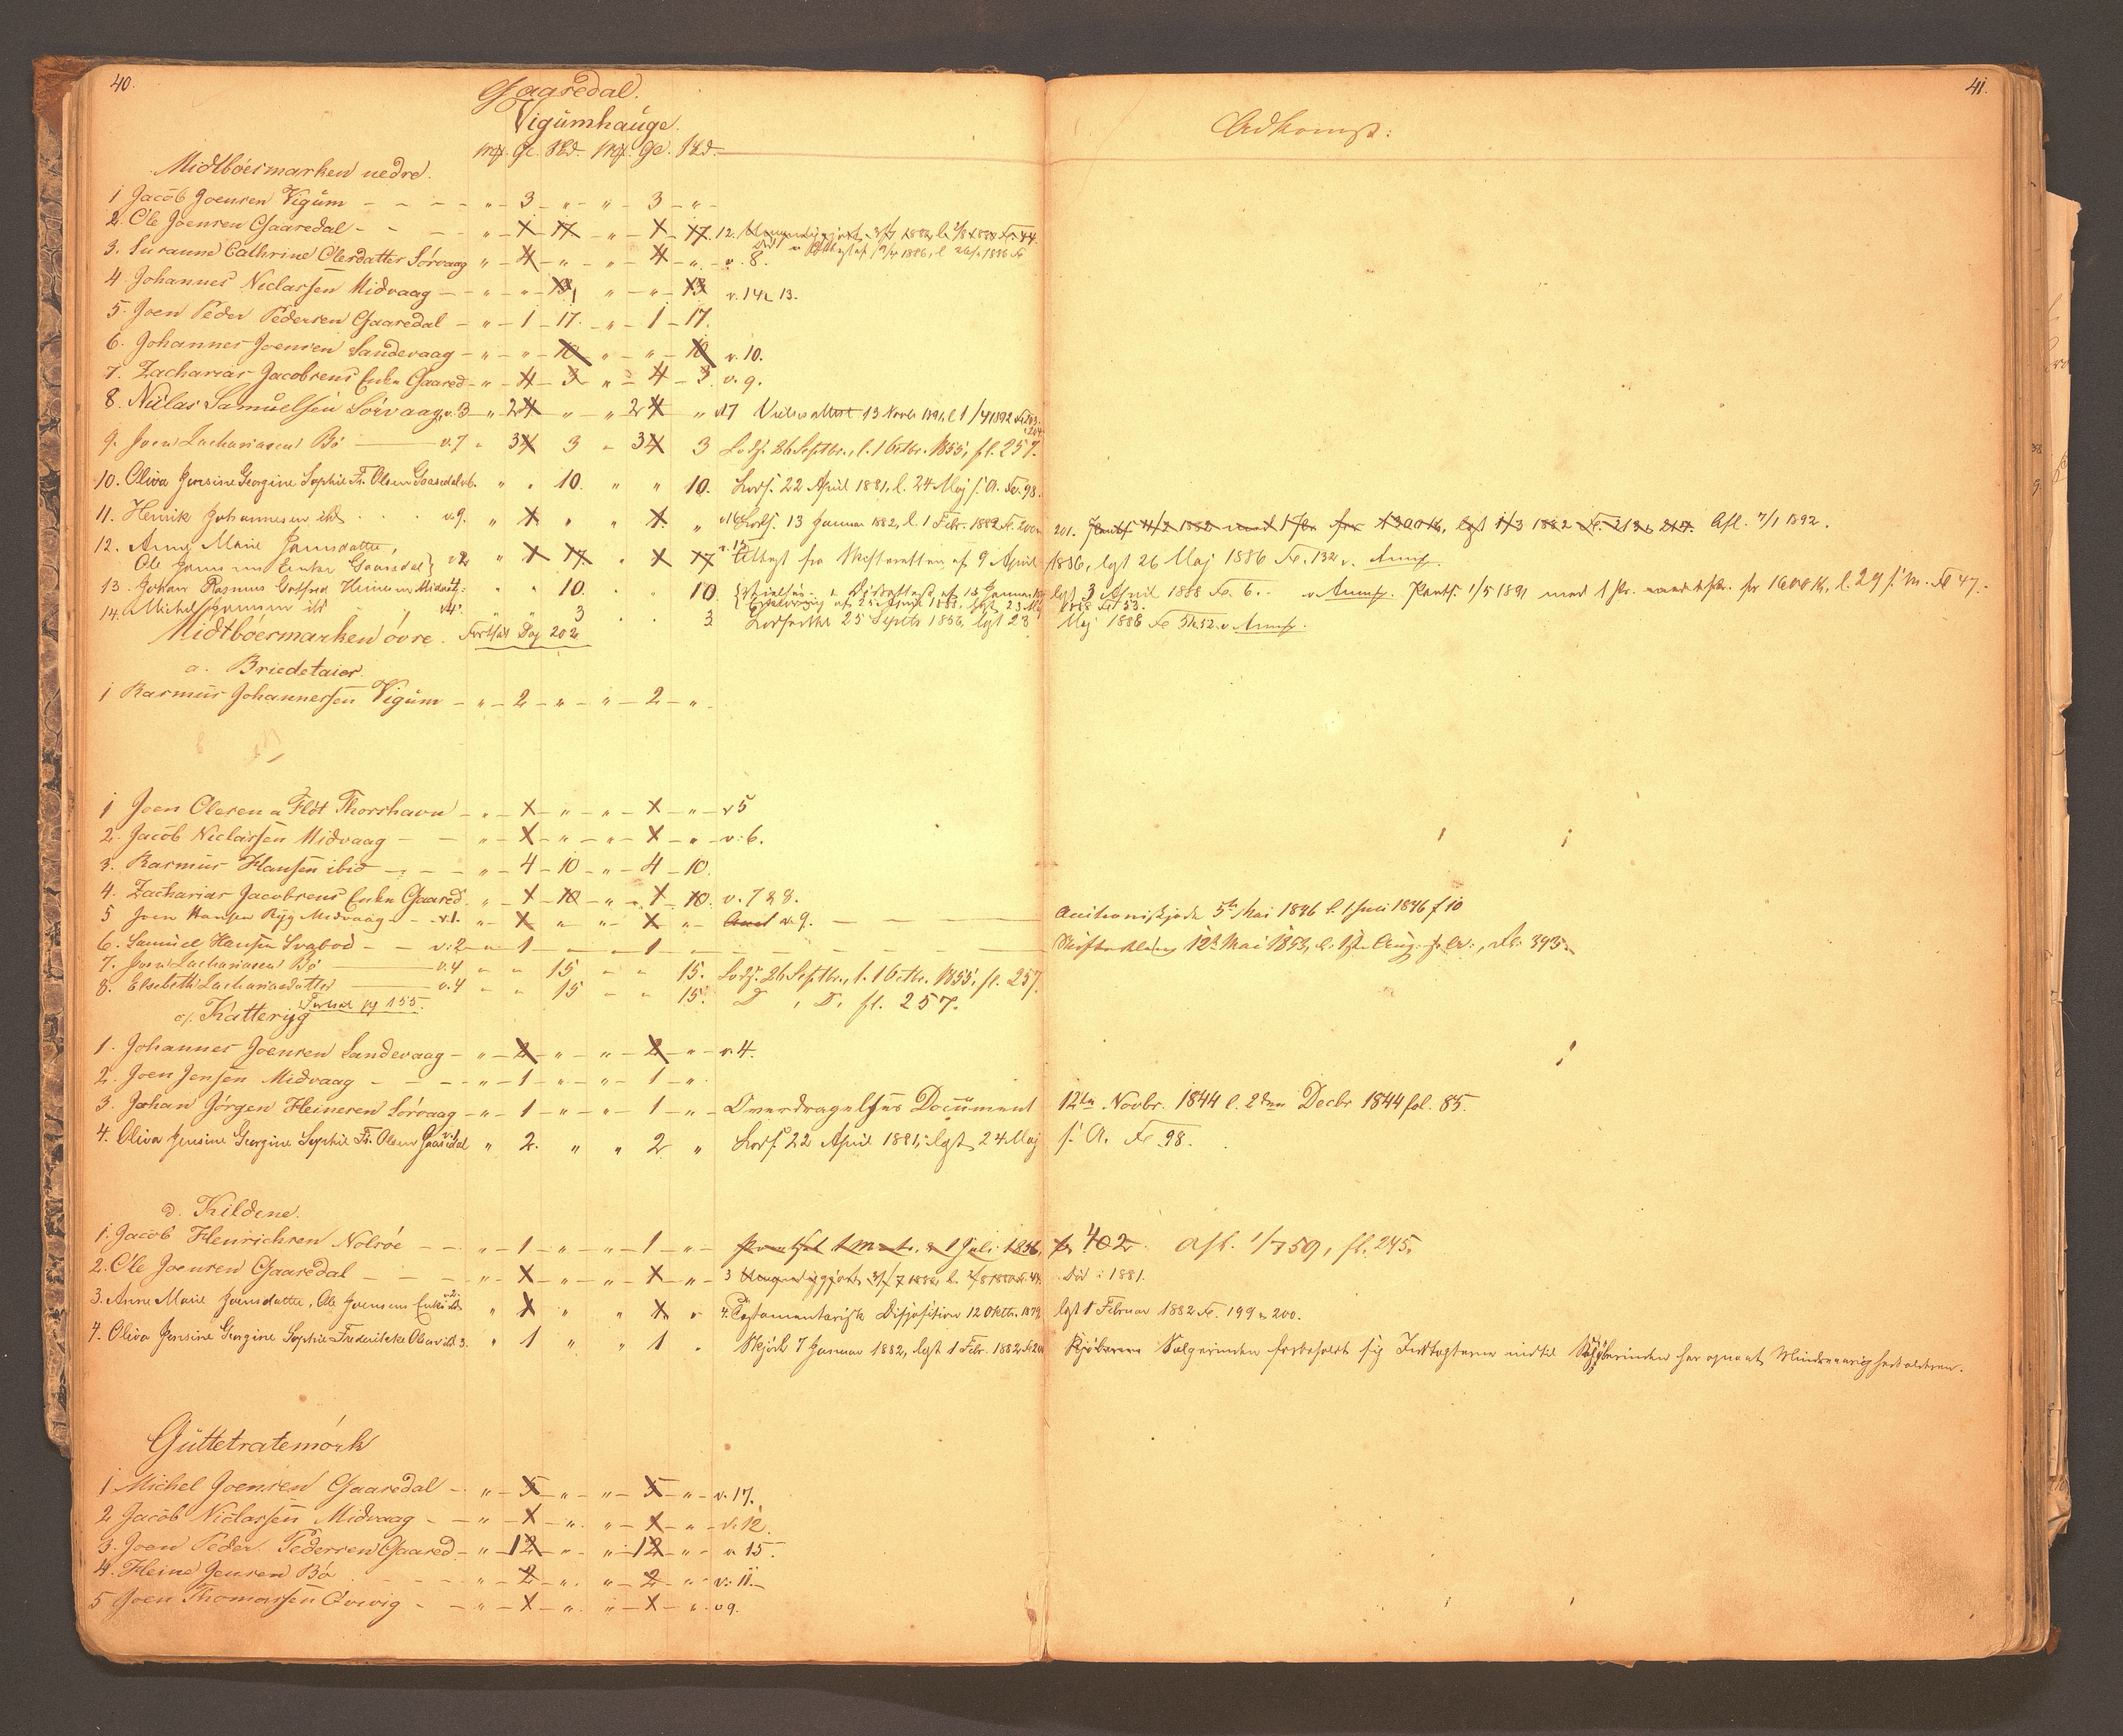 40.
Gaasedal.
Vigumhauge.
Mk. Gl. Skd. Mk. Gl. Skd.
Midtböesmarken nedre.
1 Jacob Joensen Vigum - - - - „ - 3 - „ - „ - 3 - „ -
2. Ole Joensen Gaasedal - - - „ - 1 - 17 „ - 1 - 17. 12.
3. Susanne Cathrine Olesdatter Sörvaag „ - 4 - „ - „ - 4 - „ - v. 8.
4 Johannes Niclassen Midvaag - „ - „ - 13 „ - „ - 13 v. 14 & 13.
5. Joen Peder Pedersen Gaasedal - „ - 1 - 17. - „ - 1 - 17.
6. Johannes Joensen Sandevaag - „ - „ - 10 „ - „ - 10 v. 10.
7. Zacharias Jacobsens Enke Gaased - „ - 4 - 3 „ - 4 - 3. v. 9.
8. Niclas Samuelsen Sörvaag, v. 3 „ 2 4 „ „ 2 4 „ v 17 13 Novb 1891, l 1/4 1892
9. Joen Zachariasen Bö v. 7 „ 3 4 3 „ 3 4 3 Lodz. 26 Septbr., l. 1 Octbr. 1855, fl. 257.
10. Oliva Jensine Georgine Sophie Fr. Olsen Gaasedal v6. „ „ 10. „ „ 10. 22 April 1881, l. 24 Maj s. A. Fo. 98.
11. Henrik Johannesen ibd v. 9. „ 1 „ „ 1 „ 13 Januar 1882, l. 1 Febr. 1882 Fo. 200 201. Afl. 7/1 1892.
12. Anne Marie Joensdatter, v2 „ 1 17. „ 1 17 v. 15 Udlagt fra Skifteretten af 9 April 1886, lgst 26 Maj 1886 Fo. 132 v. Anmf.
Ole Joensens Enke Gaasedal
13. Johan Rasmus Gotfred Heinesen Midv. v4. „ „ 10. „ „ 10. lgst 3 April 1888 Fo. 6. v Anmf. Pantf. 1/5 1891 med 1 Pr. for 1600 K, l. 29 s. M. Fo 47.
14. Michel Joensen ibd v4. „ „ 3 „ „ 3 25 Septbr 1856, lgst 23 Maj 1888 Fo 51, 52 v Anmf.
Midtböesmarken övre. Fortsat Pag 202
a. Briedetaier.
1 Rasmus Johannessen Vigum - „ - 2 - „ - „ - 2 - „ -
1 Joen Olesen a Flöt Thorshavn - „ - 1 - „ - „ - 1 - „ - v 5
2. Jacob Niclassen Midvaag - - „ - 1 - „ - „ - 1 - „ - v. 6.
3. Rasmus Hansen ibid - - - „ - 4 - 10 - „ - 4 - 10.
4. Zacharias Jacobsens Enke Gaased. „ - 1 - 10 - „ - 1 - 10. v. 7 & 8.
5 Joen Hansen Ryg Midvaag - - v. 1. „ - 1 „ „ - 1 „ - v. 9. - - Auctionsskjøde 5te Mai 1846 l. 1 Juli 1846 f 10
6. Samuel Hansen Svabod - - v. 2 - „ - 1 - - 1 - 12te Mai 1853, l. 1ste Aug. s. A., fl. 393.
7. Joen Zachariasen Bö v. 4 „ „ 15 „ „ 15. Lodz. 26 Septbr., l. 1 Octbr. 1855, fl. 257.
8. Elsebeth Zachariasdatter v. 4 „ „ 15 „ „ 15. D. D. fl. 257.
c/. Katteryg Fortsat pg 155.
1. Johannes Joensen Sandevaag - „ - 2 - „ - „ - 2 - „ - v. 4.
2. Joen Jensen Midvaag - - - „ - 1 - „ - „ - 1 - „ .
3. Johan Jörgen Heinesen Sörvaag - „ - 1 - „ - „ - 1 - „ - Overdragelses Document 12te Novbr. 1844 l. 2den Decbr 1844 fol. 85.
4. Oliva Jensine Georgine Sophie Fr. Olsen Gaasedal v. 1 „ 2. „ „ 2 „ 22 April 1881, lgst 24 Maj s. A. Fo 98.
d. Kildene.
1. Jacob Henrichsen Nolsöe - - „ - 1 - „ - „ - 1 - „ - 1 Juli 1856, fo 402. Afl. 1/7 59, fl. 245.
2. Ole Joensen Gaasedal - - - „ - 1 - „ - „ - 1 - „ - 3 Död i 1881.
3. Anne Marie Joensdatter, Ole Joensens Enke ibd v. 2. „ 1 „ „ 1 „ 4. Testamentarisk Disposition 12 Oktbr. 1879 lgst 1 Februar 1882 Fo. 199 & 200.
4. Oliva Jensine Georgine Sophie Frederikke Olsen ibd 3. „ 1 „ „ 1 „ Skjøde 7 Januar 1882, lgst 1 Febr. 1882 Fo 201 Sælgerinden forbeholdt sig Indtægterne indtil Kjøberinden har opnaaet Mindreaarighedsalderen.
Guttetratemörk
1 Michel Joensen Gaasedal - „ - 5 - „ - „ - 5 - „ - v. 17.
2 Jacob Niclassen Midvaag - - „ - 1 - „ . „ - 1 - „ - v. 12.
3. Joen Peder Pedersen Gaased - „ - 12 - „ - „ - 12 - „ - v 15.
4. Heine Jensen Bö - - - „ - 2 - „ . „ - 2 - „ - v. 11. -
5 Joen Thomassen Qvivig - - „ - 1 - „ . „ - 1 - „ . v 9.
41.
Adkomst: